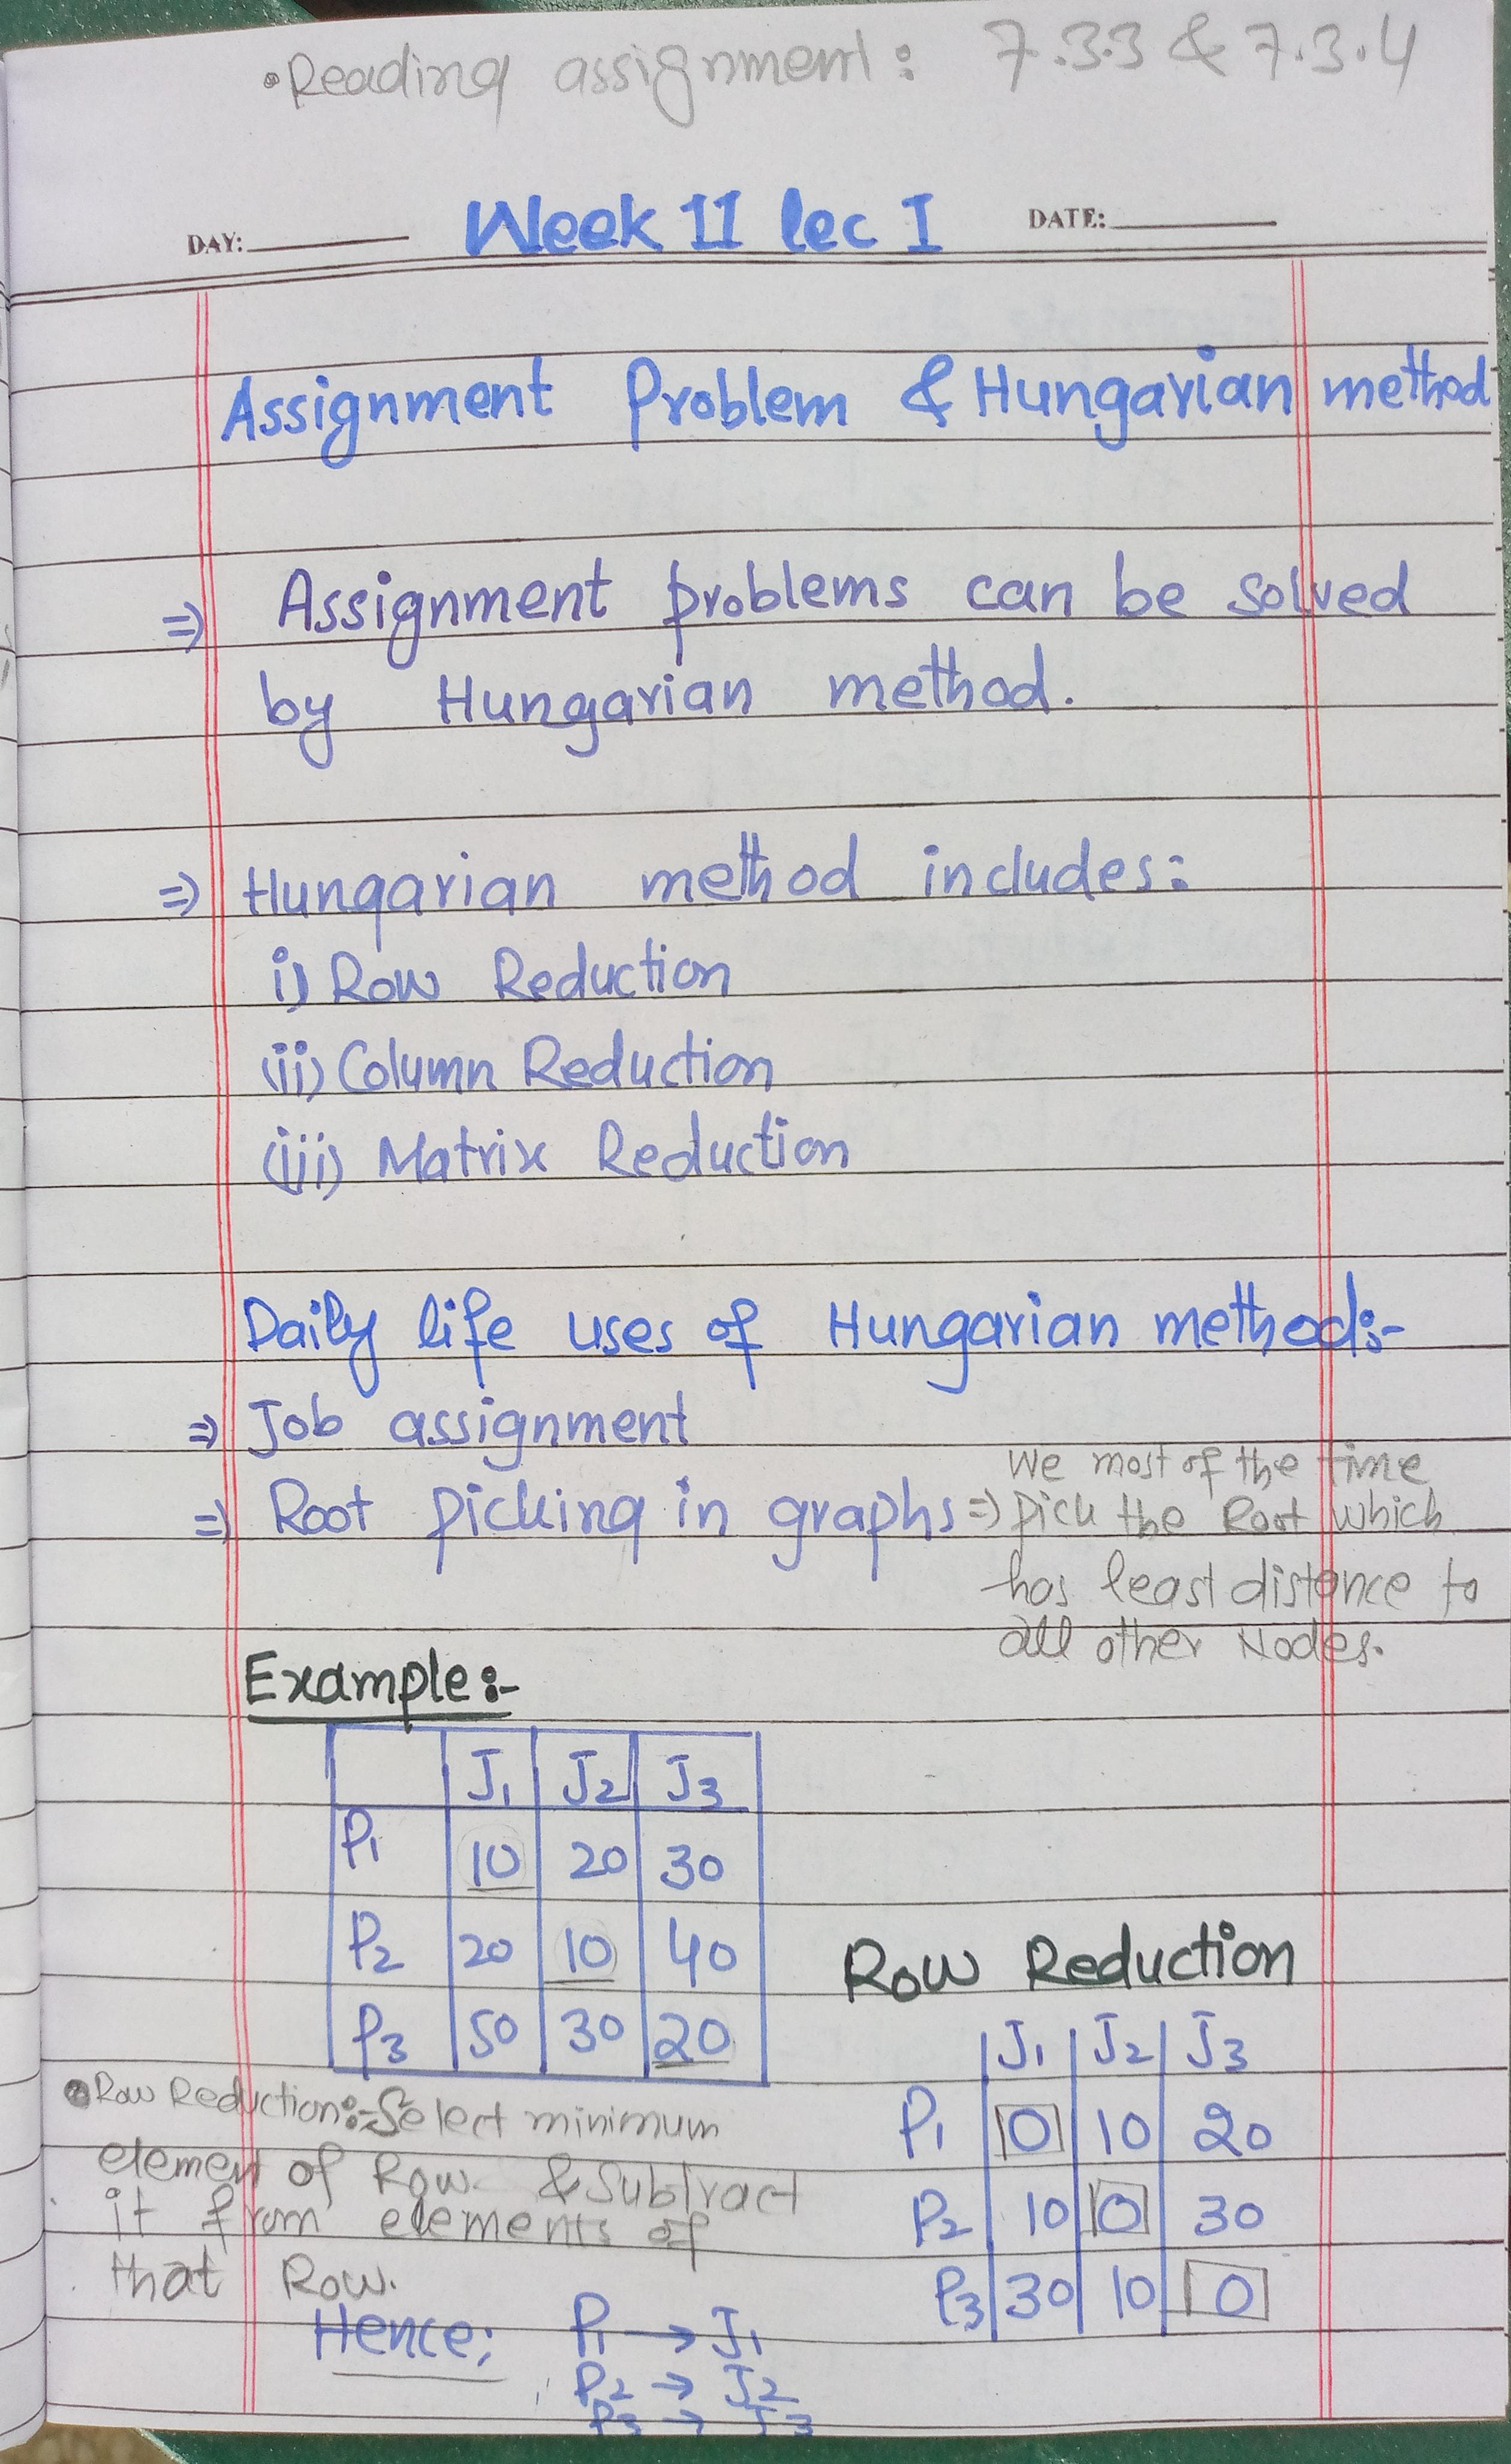 • Reading assignment: 7.3.3 & 7.3.4
Week 11 lec I
DAY: DATE:
Assignment Problem & Hungarian method
⇒ Assignment problems can be solved
by Hungarian method.
⇒ Hungarian method includes:
i) Row Reduction
(ii) Column Reduction
(iii) Matrix Reduction
Daily life uses of Hungarian method:-
⇒ Job assignment
⇒ Root picking in graphs ⇒
We most of the time
pick the Root which
has least distance to
all other Nodes.
Example:-
J1 J2 J3
P1 10 20 30
P2 20 10 40
P3 50 30 20
• Row Reduction:- Select minimum
element of Row & Subtract
it from elements of
that Row.
Row Reduction
J1 J2 J3
P1 0 10 20
P2 10 0 30
P3 30 10 0
Hence; P1 → J1
P2 → J2
P3 → J3